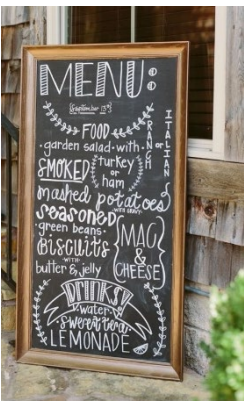 MENU:
September 13th
FOOD
garden salad with
RANCH
or
ITALIAN
SMOKED
turkey
or
ham
mashed potatoes
WITH GRAVY
Seasoned
green beans
Biscuits
WITH
butter & jelly
MAC
&
CHEESE
DRINKS
water
Sweet tea
LEMONADE